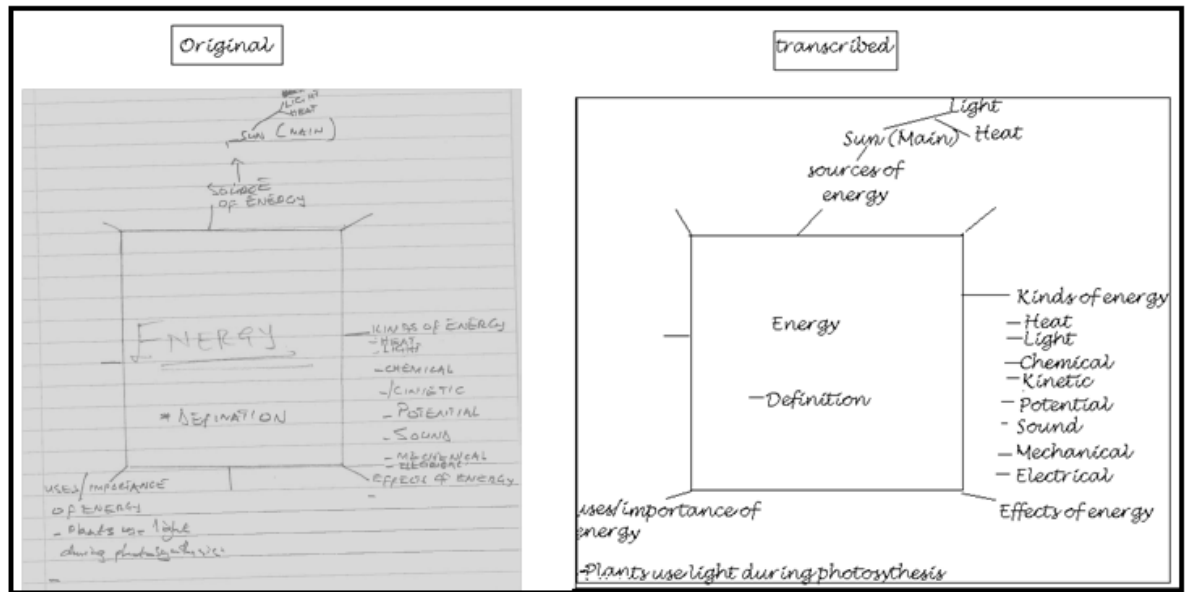 Original
LIGHT
HEAT
SUN (MAIN)
SOURCE
OF ENERGY
ENERGY
* DEFINATION
KINDS OF ENERGY
- HEAT
- LIGHT
- CHEMICAL
- KINETIC
- POTENTIAL
- SOUND
- MECHENICAL
- ELECTRICAL
EFFECTS OF ENERGY
-
USES/IMPORTANCE
OF ENERGY
- Plants use light
during photosynthesis.
-
transcribed
Light
Sun (Main)
Heat
sources of
energy
Energy
-Definition
Kinds of energy
-Heat
-Light
-Chemical
-Kinetic
-Potential
- Sound
-Mechanical
- Electrical
Effects of energy
uses/importance of
energy
-Plants use light during photosythesis